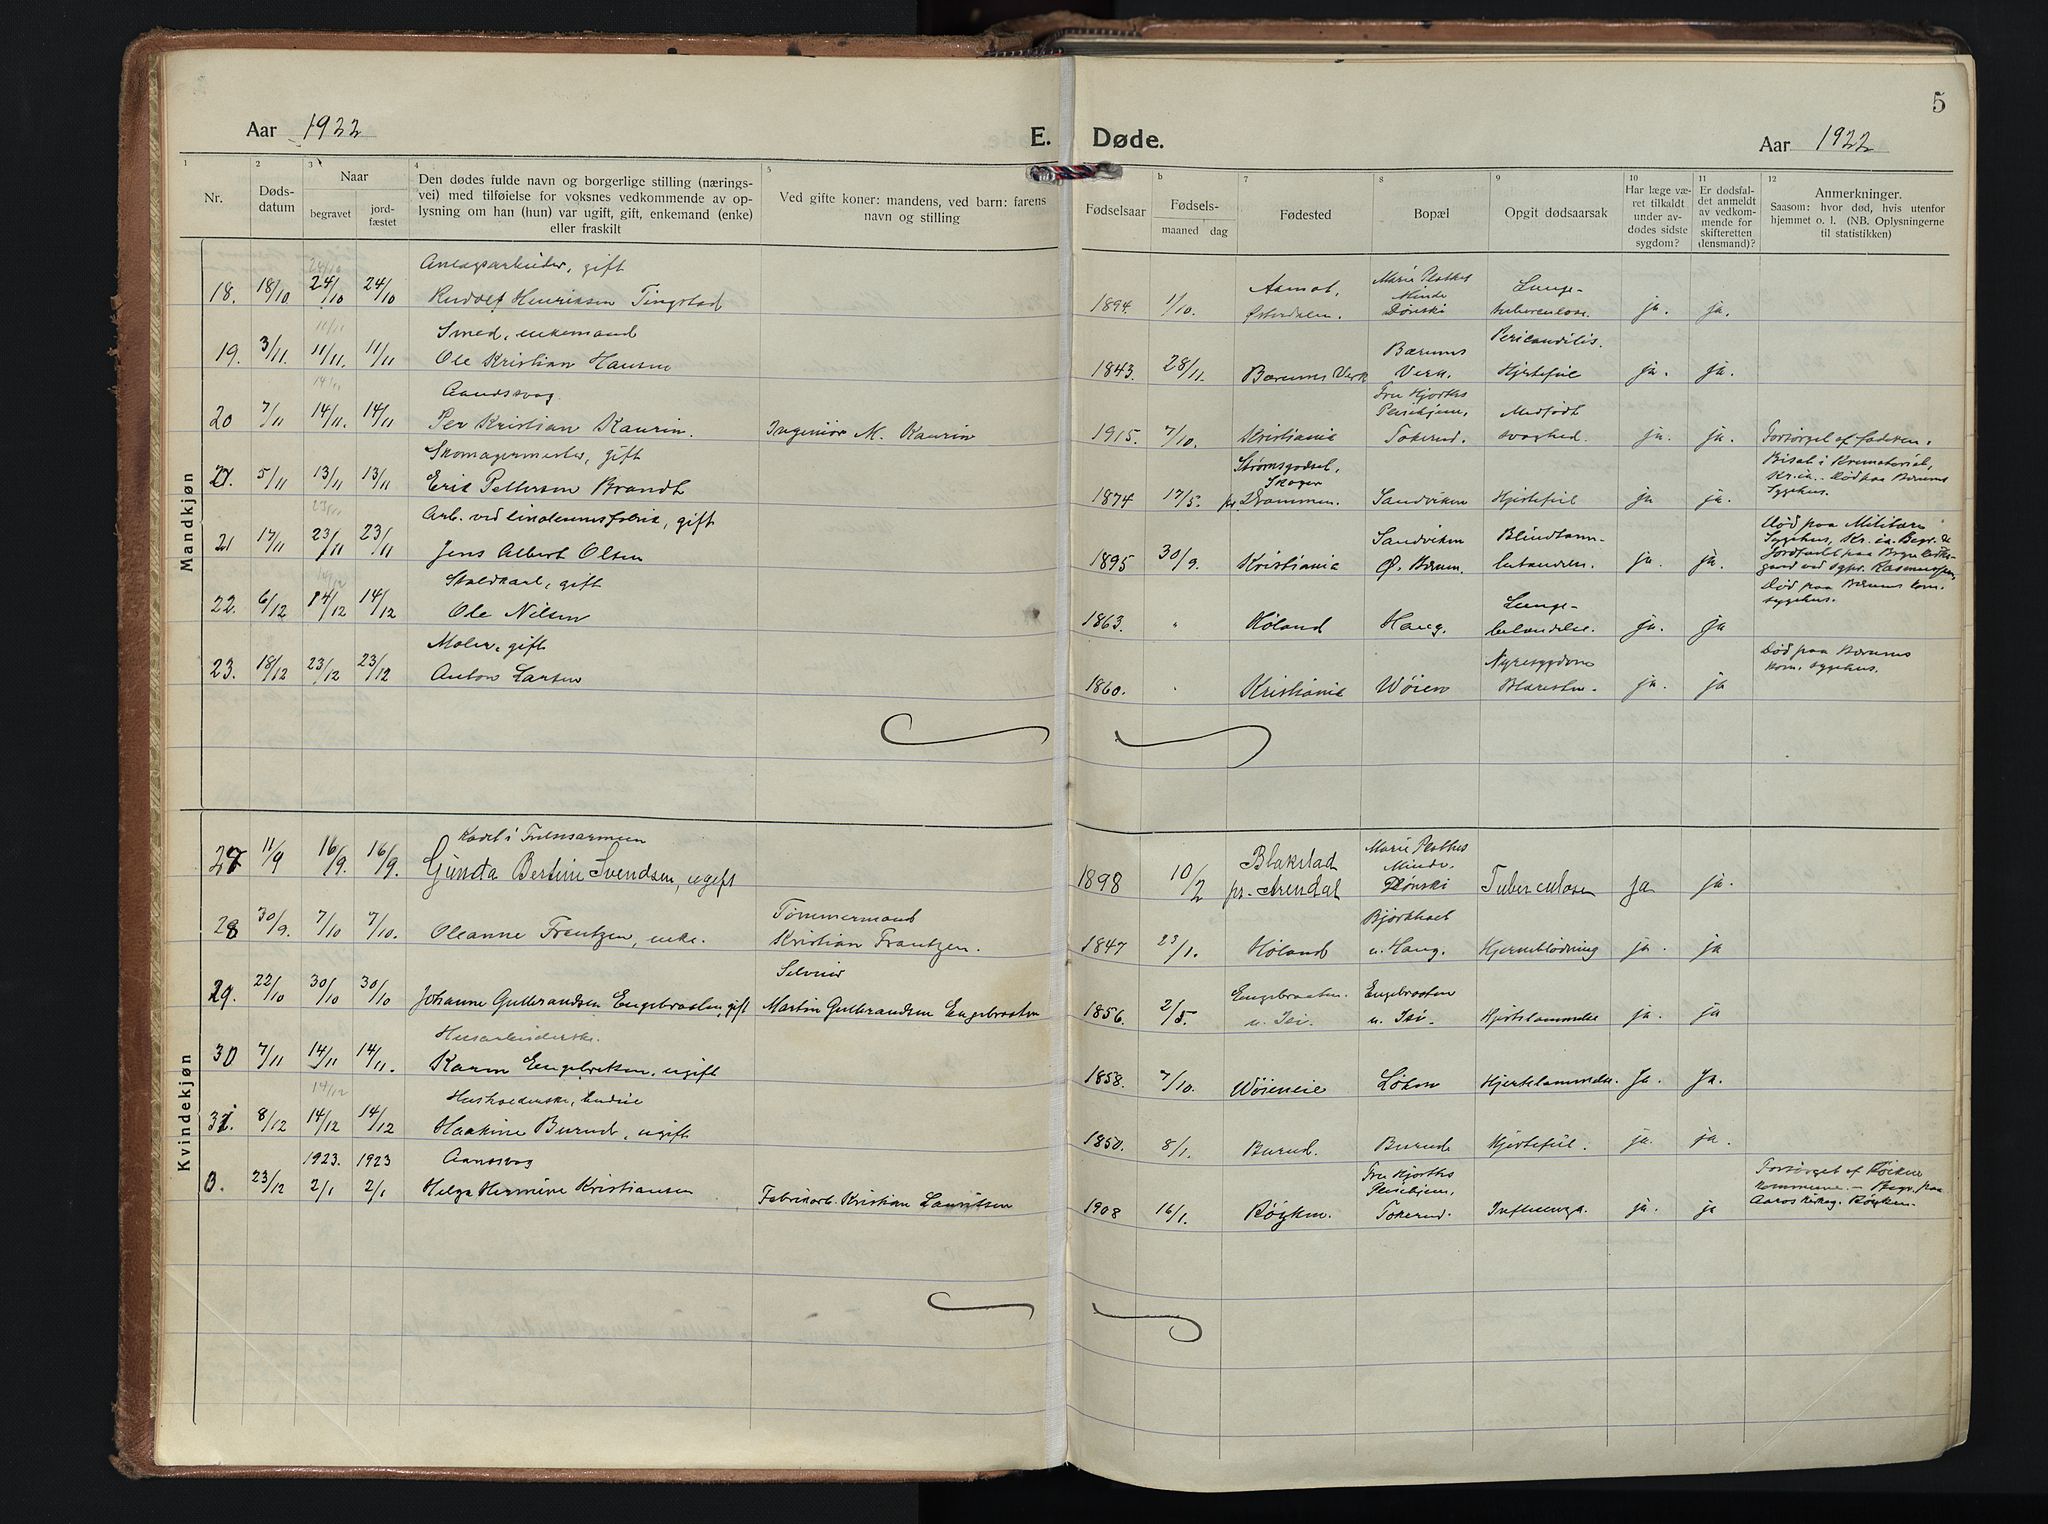 5
Aar 1922
E. Døde.
Aar 1922
1 2 3 4 5 b 7 8 9 10 11 12
Nr.
Døds-
datum
Naar
begravet
jord-
fæstet
Den dødes fulde navn og borgerlige stilling (nærings-
vei) med tilføielse for voksnes vedkommende av op-
lysning om han (hun) var ugift, gift, enkemand (enke)
eller fraskilt
Ved gifte koner: mandens, ved barn: farens
navn og stilling
Fødselsaar
Fødsels-
maaned dag
Fødested
Bopæl
Opgit dødsaarsak
Har læge væ-
ret tilkaldt
under av-
dødes sidste
sygdom?
Er dødsfal-
det anmeldt
av vedkom-
mende for
skifteretten
(lensmand)?
Anmerkninger.
Saasom: hvor død, hvis utenfor
hjemmet o. l. (NB. Oplysningerne
til statistikken)
Mandkjøn
24/10
Anlægsarbeider, gift
18. 18/10 24/10 24/10 Rudolf Henriksen Tingstad
1894. 1/10. Aamot, Østerdalen.
Marie Plathes
Minde
Dønski
Lunge-
tuberculose
ja. ja.
11/11
Smed, enkemand
19. 3/11. 11/11. 11/11 Ole Kristian Hansen
1843. 28/11. Bærums Verk
Bærums
Verk.
Pericarditis.
Hjertefeil
ja. ja.
14/11
Aandssvag
20 7/11 14/11. 14/11 Per Kristian Kaurin. Ingeniør M. Kaurin
1915. 7/10. Kristiania
Fru Hjorths
Pleiehjem,
Tokerud.
Medfødt
svaghed.
ja. ja. Forsørget af faderen.
Skomagermester, gift
21. 5/11 13/11 13/11 Eric Pettersen Brandt
1874 17/5.
Strømsgodset,
Skoger
pr. Drammen.
Sandviken Hjertefeil ja ja.
Bisat i Krematoriet,
Kr.ia. Død paa Bærums
Sygehus.
23/11
Arb. ved linoleumsfabrik, gift
21 17/11 23/11 23/11 Jens Albert Olsen
1895 30/9. Kristiania
Sandviken
Ø. Bærum.
Blindtarm-
betændelse.
ja. ja.
Død paa Militære
Sygehus, Kr. ia. Begr. &
Jordfæstet paa
14/12
Staldkarl, gift
22. 6/12 14/12 14/12 Ole Nilsen
1863. " Høland Haug.
Lunge-
betændelse.
ja. ja
Død paa Bærums kom.
sygehus.
Maler, gift
23. 18/12 23/12 23/12 Anton Larsen
1860. " Kristiania Wøien
Nyresygdom
Blæresten.
ja. ja
Død paa Bærums
kom. sygehus.
Kvindekjøn
Kadet i Frelsesarmeen
27 11/9 16/9. 16/9. Gunda Bertine Svendsen, ugift
1898 10/2
Blakstad
pr. Arendal
Marie Plathes
Minde.
Dønski
Tuberculose ja ja.
28 30/9. 7/10 7/10. Oleanne Frantzen, enke.
Tømmermand
Kristian Frantzen.
1847 23/1. Høland
Bjørkholt
u. Haug.
Hjerneblødning ja. ja
29. 22/10 30/10 30/10 Johanne Gulbrandsen Engebraaten, gift
Selveier
Martin Gulbrandsen Engebraaten
1856. 2/5.
Engebraaten.
u. Isi.
Engebraaten
u. Isi.
Hjertelammelse ja. ja
Husarbeiderske.
30 7/11 14/11 14/11. Karen Engebretsen, ugift
1858. 7/10. Wøieneie Løken Hjertelammelse. Ja. Ja.
14/12
Husholderske,
31. 8/12 14/12 14/12 Haakine Burud, ugift
1850. 8/1. Burud. Burud Hjertefeil. ja. ja.
1923. 1923
Aandssvag
0. 23/12 2/1 2/1 Helga Hermine Kristiansen Fabrikarb. Kristian Lauritsen
1908 16/1. Røyken.
Fru Hjorths
Pleiehjem,
Tokerud.
Influenza. ja. ja
Forsørget af Røiken
kommune. – Begr. paa
Aaros kirkeg. Røyken.